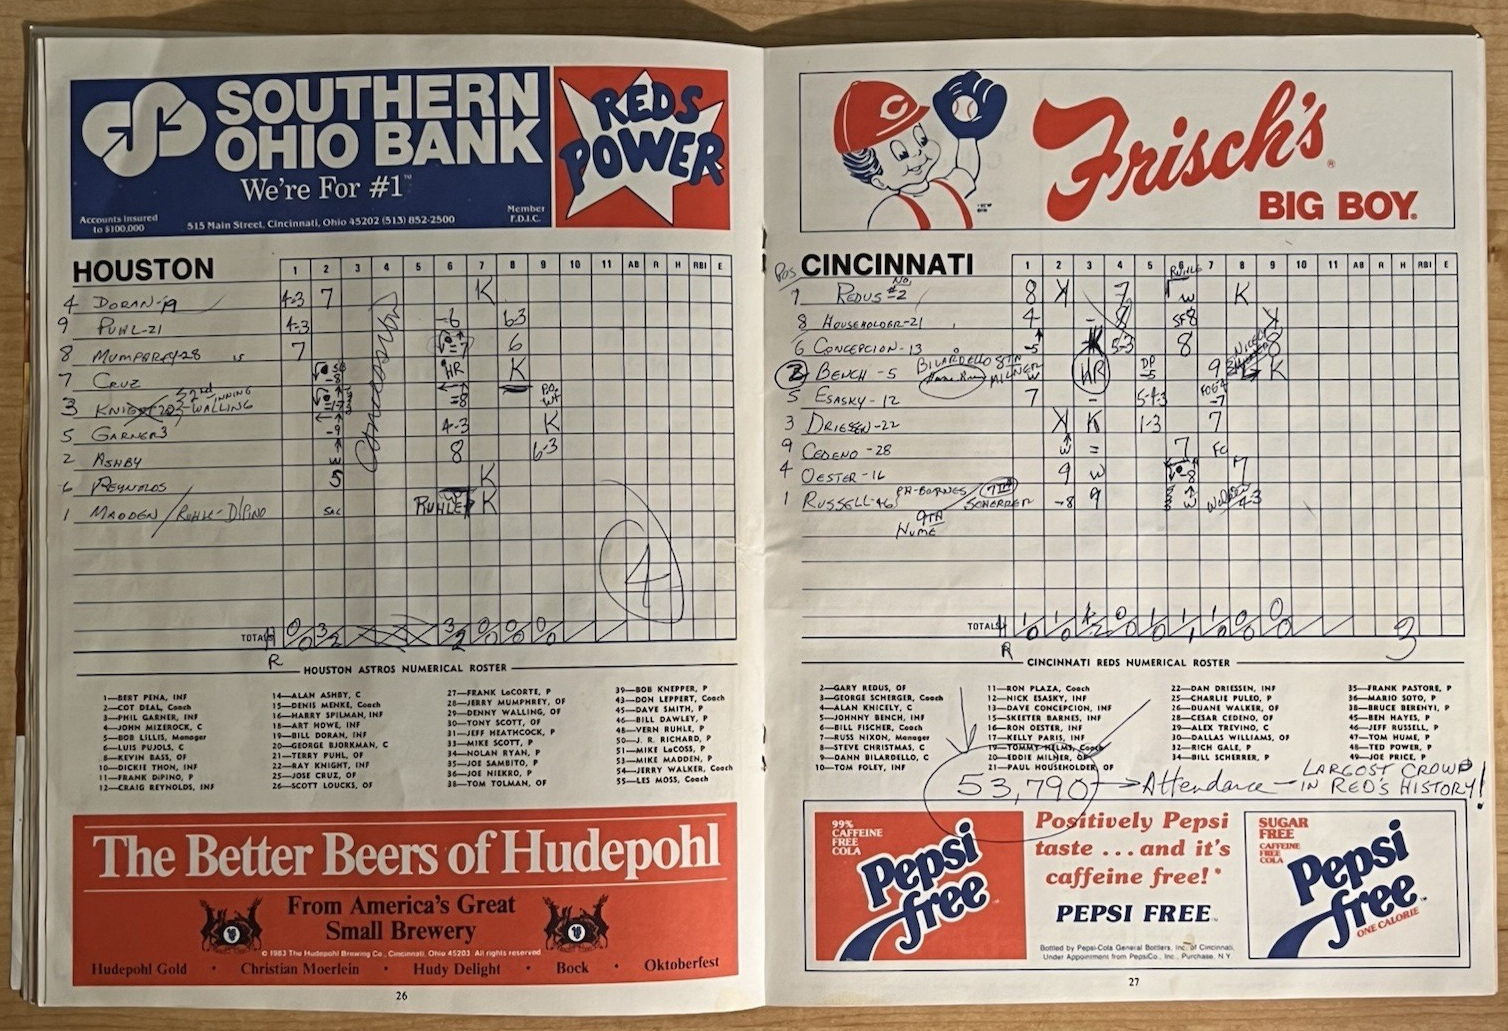 SOUTHERN
OHIO BANK
We're For #1™
Accounts insured
to $100,000
515 Main Street, Cincinnati, Ohio 45202 (513) 852-2500
Member
F.D.I.C.
REDS
POWER
HOUSTON
1 2 3 4 5 6 7 8 9 10 11 AB R H RBI E
4 DORAN-19 4-3 7 K
9 PUHL-21 4-3 6-3
8 MUMPHREY-28 7 6
7 CRUZ HR K
3 KNIGHT 2nd INNING WALLING =8
5 GARNER 3 -9 4-3 K
2 ASHBY W 8 6-3
6 REYNOLDS 5 K
1 MADDEN / RUHLE-DIPINO SAC RUHLE K
Concession
4
TOTALS H
R
HOUSTON ASTROS NUMERICAL ROSTER
1—BERT PENA, INF
2—COT DEAL, Coach
3—PHIL GARNER, INF
4—JOHN MIZEROCK, C
5—BOB LILLIS, Manager
6—LUIS PUJOLS, C
8—KEVIN BASS, OF
10—DICKIE THON, INF
11—FRANK DiPINO, P
12—CRAIG REYNOLDS, INF
14—ALAN ASHBY, C
15—DENIS MENKE, Coach
16—HARRY SPILMAN, INF
18—ART HOWE, INF
19—BILL DORAN, INF
20—GEORGE BJORKMAN, C
21—TERRY PUHL, OF
22—RAY KNIGHT, INF
25—JOSE CRUZ, OF
26—SCOTT LOUCKS, OF
27—FRANK LaCORTE, P
28—JERRY MUMPHREY, OF
29—DENNY WALLING, OF
30—TONY SCOTT, OF
31—JEFF HEATHCOCK, P
33—MIKE SCOTT, P
34—NOLAN RYAN, P
35—JOE SAMBITO, P
36—JOE NIEKRO, P
38—TOM TOLMAN, OF
39—BOB KNEPPER, P
43—DON LEPPERT, Coach
45—DAVE SMITH, P
46—BILL DAWLEY, P
48—VERN RUHLE, P
50—J. R. RICHARD, P
51—MIKE LaCOSS, P
53—MIKE MADDEN, P
54—JERRY WALKER, Coach
55—LES MOSS, Coach
The Better Beers of Hudepohl
From America's Great
Small Brewery
© 1983 The Hudepohl Brewing Co., Cincinnati, Ohio 45203 All rights reserved
Hudepohl Gold • Christian Moerlein • Hudy Delight • Bock • Oktoberfest
26
Frisch's®
BIG BOY®
Pos
CINCINNATI
1 2 3 4 5 6 7 8 9 10 11 AB R H RBI E
RUHLE
7 REDUS No. #2 8 K 7 W K
8 HOUSEHOLDER-21 4 SF8 K
6 CONCEPCION-13 -5 K 5-3 8 8
2 BENCH-5 BILARDELLO 8TH MILNER W HR DP -5 9 K
5 ESASKY-12 7 - 5-4-3 -7
3 DRIESSEN-22 K K 1-3 7
9 CEDENO-28 W = 7 FC
4 OESTER-16 9 W -8 7
1 RUSSELL-46 PH-BARNES 7TH SCHERRER -8 9 W 4-3
9TH
HUME
TOTALS H
R
3
CINCINNATI REDS NUMERICAL ROSTER
2—GARY REDUS, OF
3—GEORGE SCHERGER, Coach
4—ALAN KNICELY, C
5—JOHNNY BENCH, INF
6—BILL FISCHER, Coach
7—RUSS NIXON, Manager
8—STEVE CHRISTMAS, C
9—DANN BILARDELLO, C
10—TOM FOLEY, INF
11—RON PLAZA, Coach
12—NICK ESASKY, INF
13—DAVE CONCEPCION, INF
15—SKEETER BARNES, INF
16—RON OESTER, INF
17—KELLY PARIS, INF
19—TOMMY HELMS, Coach
20—EDDIE MILNER, OF
21—PAUL HOUSEHOLDER, OF
22—DAN DRIESSEN, INF
25—CHARLIE PULEO, P
26—DUANE WALKER, OF
28—CESAR CEDENO, OF
29—ALEX TREVINO, C
30—DALLAS WILLIAMS, OF
32—RICH GALE, P
34—BILL SCHERRER, P
35—FRANK PASTORE, P
36—MARIO SOTO, P
38—BRUCE BERENYI, P
45—BEN HAYES, P
46—JEFF RUSSELL, P
47—TOM HUME, P
48—TED POWER, P
49—JOE PRICE, P
53,790 → Attendance — LARGEST CROWD
IN RED'S HISTORY!
99%
CAFFEINE
FREE
COLA
Pepsi
free
Positively Pepsi
taste ...and it's
caffeine free!*
PEPSI FREE™
Bottled by Pepsi-Cola General Bottlers, Inc. of Cincinnati,
Under Appointment from PepsiCo., Inc., Purchase, N.Y.
SUGAR
FREE
CAFFEINE
FREE
COLA
Pepsi
free™
ONE CALORIE
27